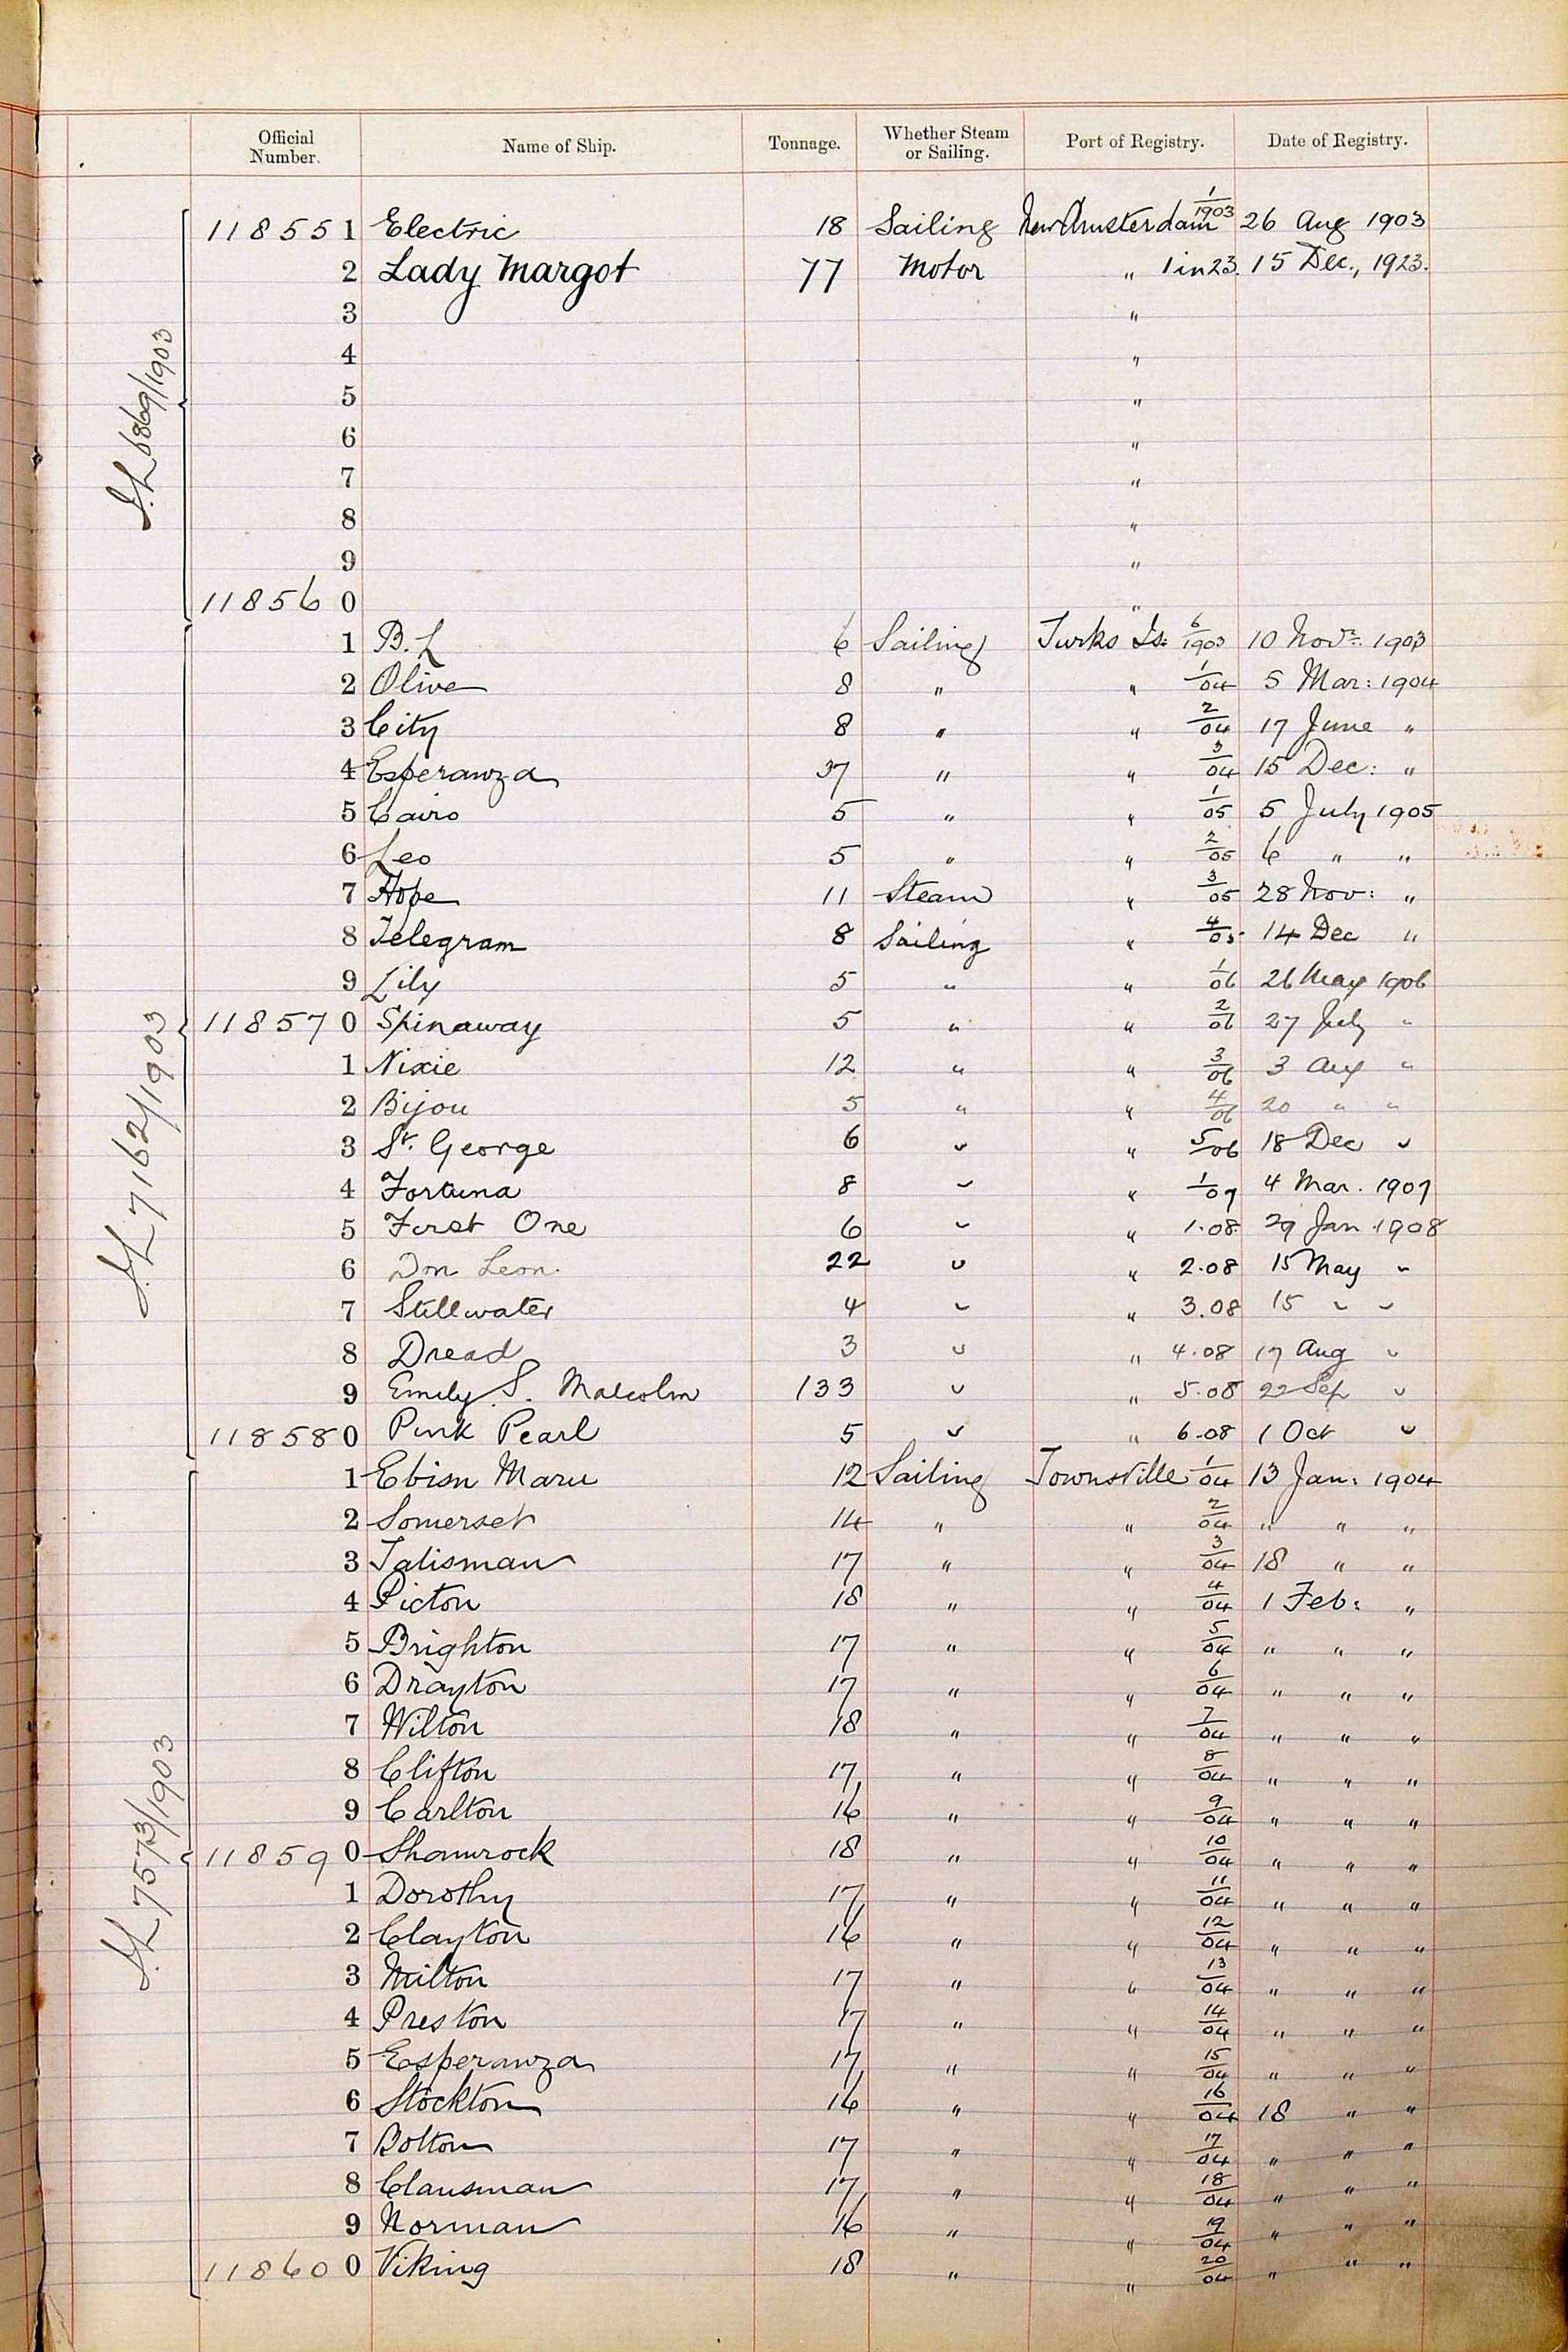 Official Number. Name of Ship. Tonnage. Whether Steam or Sailing. Port of Registry. Date of Registry.
118551 Electric 18 Sailing New Amsterdam 1/1903 26 Aug 1903
2 Lady Margot 77 Motor " 1 in 23. 15 Dec., 1923.
3 "
4 "
5 "
6 "
7 "
8 "
9 "
118560 "
1 B.L 6 Sailing Turks Is: 6/1903 10 Novr. 1903
2 Olive 8 " " 1/04 5 Mar: 1904
3 City 8 " " 2/04 17 June "
4 Esperanza 37 " " 3/04 15 Dec: "
5 Cairo 5 " " 1/05 5 July 1905
6 Leo 5 " " 2/05 6 " "
7 Hope 11 Steam " 3/05 28 Nov: "
8 Telegram 8 Sailing " 4/05 14 Dec "
9 Lily 5 " " 1/06 26 May 1906
118570 Spinaway 5 " " 2/06 27 July "
1 Nixie 12 " " 3/06 3 Aug "
2 Bijou 5 " " 4/06 20 " "
3 St. George 6 " " 5/06 18 Dec "
4 Fortuna 8 " " 1/07 4 Mar. 1907
5 First One 6 " " 1.08 29 Jan 1908
6 Don Leon 22 " " 2.08 15 May "
7 Stillwater 4 " " 3.08 15 " "
8 Dread 3 " " 4.08 17 Aug "
9 Emily S. Malcolm 133 " " 5.08 22 Sep "
118580 Pink Pearl 5 " " 6.08 1 Oct "
1 Ebisu Maru 12 Sailing Townsville 1/04 13 Jan: 1904
2 Somerset 14 " " 2/04 " " "
3 Talisman 17 " " 3/04 18 " "
4 Picton 18 " " 4/04 1 Feb: "
5 Brighton 17 " " 5/04 " " "
6 Drayton 17 " " 6/04 " " "
7 Wilton 18 " " 7/04 " " "
8 Clifton 17 " " 8/04 " " "
9 Carlton 16 " " 9/04 " " "
118590 Shamrock 18 " " 10/04 " " "
1 Dorothy 17 " " 11/04 " " "
2 Clayton 16 " " 12/04 " " "
3 Milton 17 " " 13/04 " " "
4 Preston 17 " " 14/04 " " "
5 Esperanza 17 " " 15/04 " " "
6 Stockton 16 " " 16/04 18 " "
7 Bolton 17 " " 17/04 " " "
8 Clansman 17 " " 18/04 " " "
9 Norman 16 " " 19/04 " " "
118600 Viking 18 " " 20/04 " " "
6869/1903
7162/1903
7573/1903